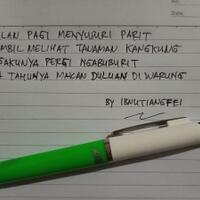 LAN PAGI MENYUSURI PARIT
MBIL MELIHAT TANAMAN KANGKUNG
AKUNYA PERGI NGABUBURIT
TAHUNYA MAKAN DULUAN DI WARUNG
BY IBNUTIANGFEI